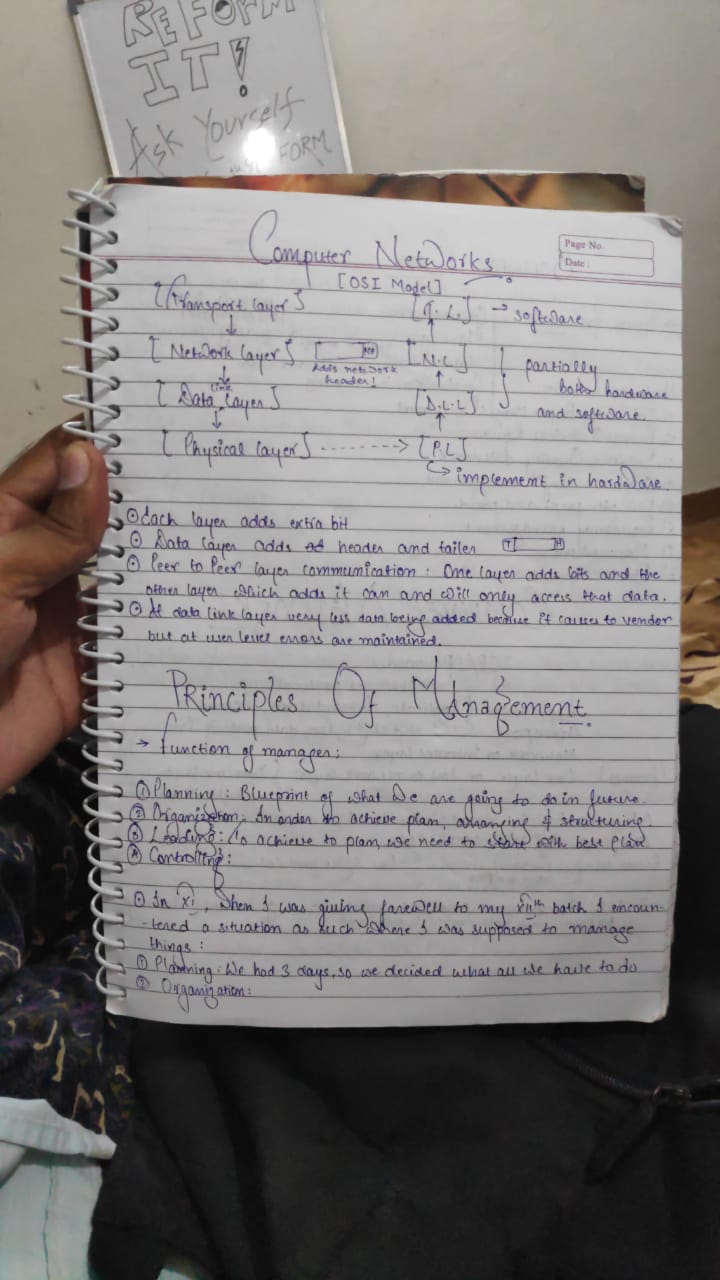 REFORM
IT!
Ask Yourself
FORM
Page No.
Date :
Computer Networks
[OSI Model]
[Transport layer] [T.L] → software
[Network layer] [N.L] partially
Adds network
header!
both hardware
link
[Data layer] [D.L.L] and software.
[Physical layer] -------> [P.L]
→ implement in hardware
Each layer adds extra bit
Data layer adds header and tailer T H
Peer to Peer layer communication : One layer adds bits and the
other layer which adds it can and will only access that data.
At data link layer very less data being added because it causes to vendor
but at user level errors are maintained.
Principles Of Management.
→ function of manager:
① Planning : Blueprint of what we are going to do in future.
② Organization: In order to achieve plan, arranging & structuring.
③ Leading: To achieve to plan, we need to start with best plan
④ Controlling:
In XI, when I was giving farewell to my XIIth batch I encoun-
-tered a situation as such where I was supposed to manage
things :
① Planning: We had 3 days, so we decided what all we have to do
② Organization: